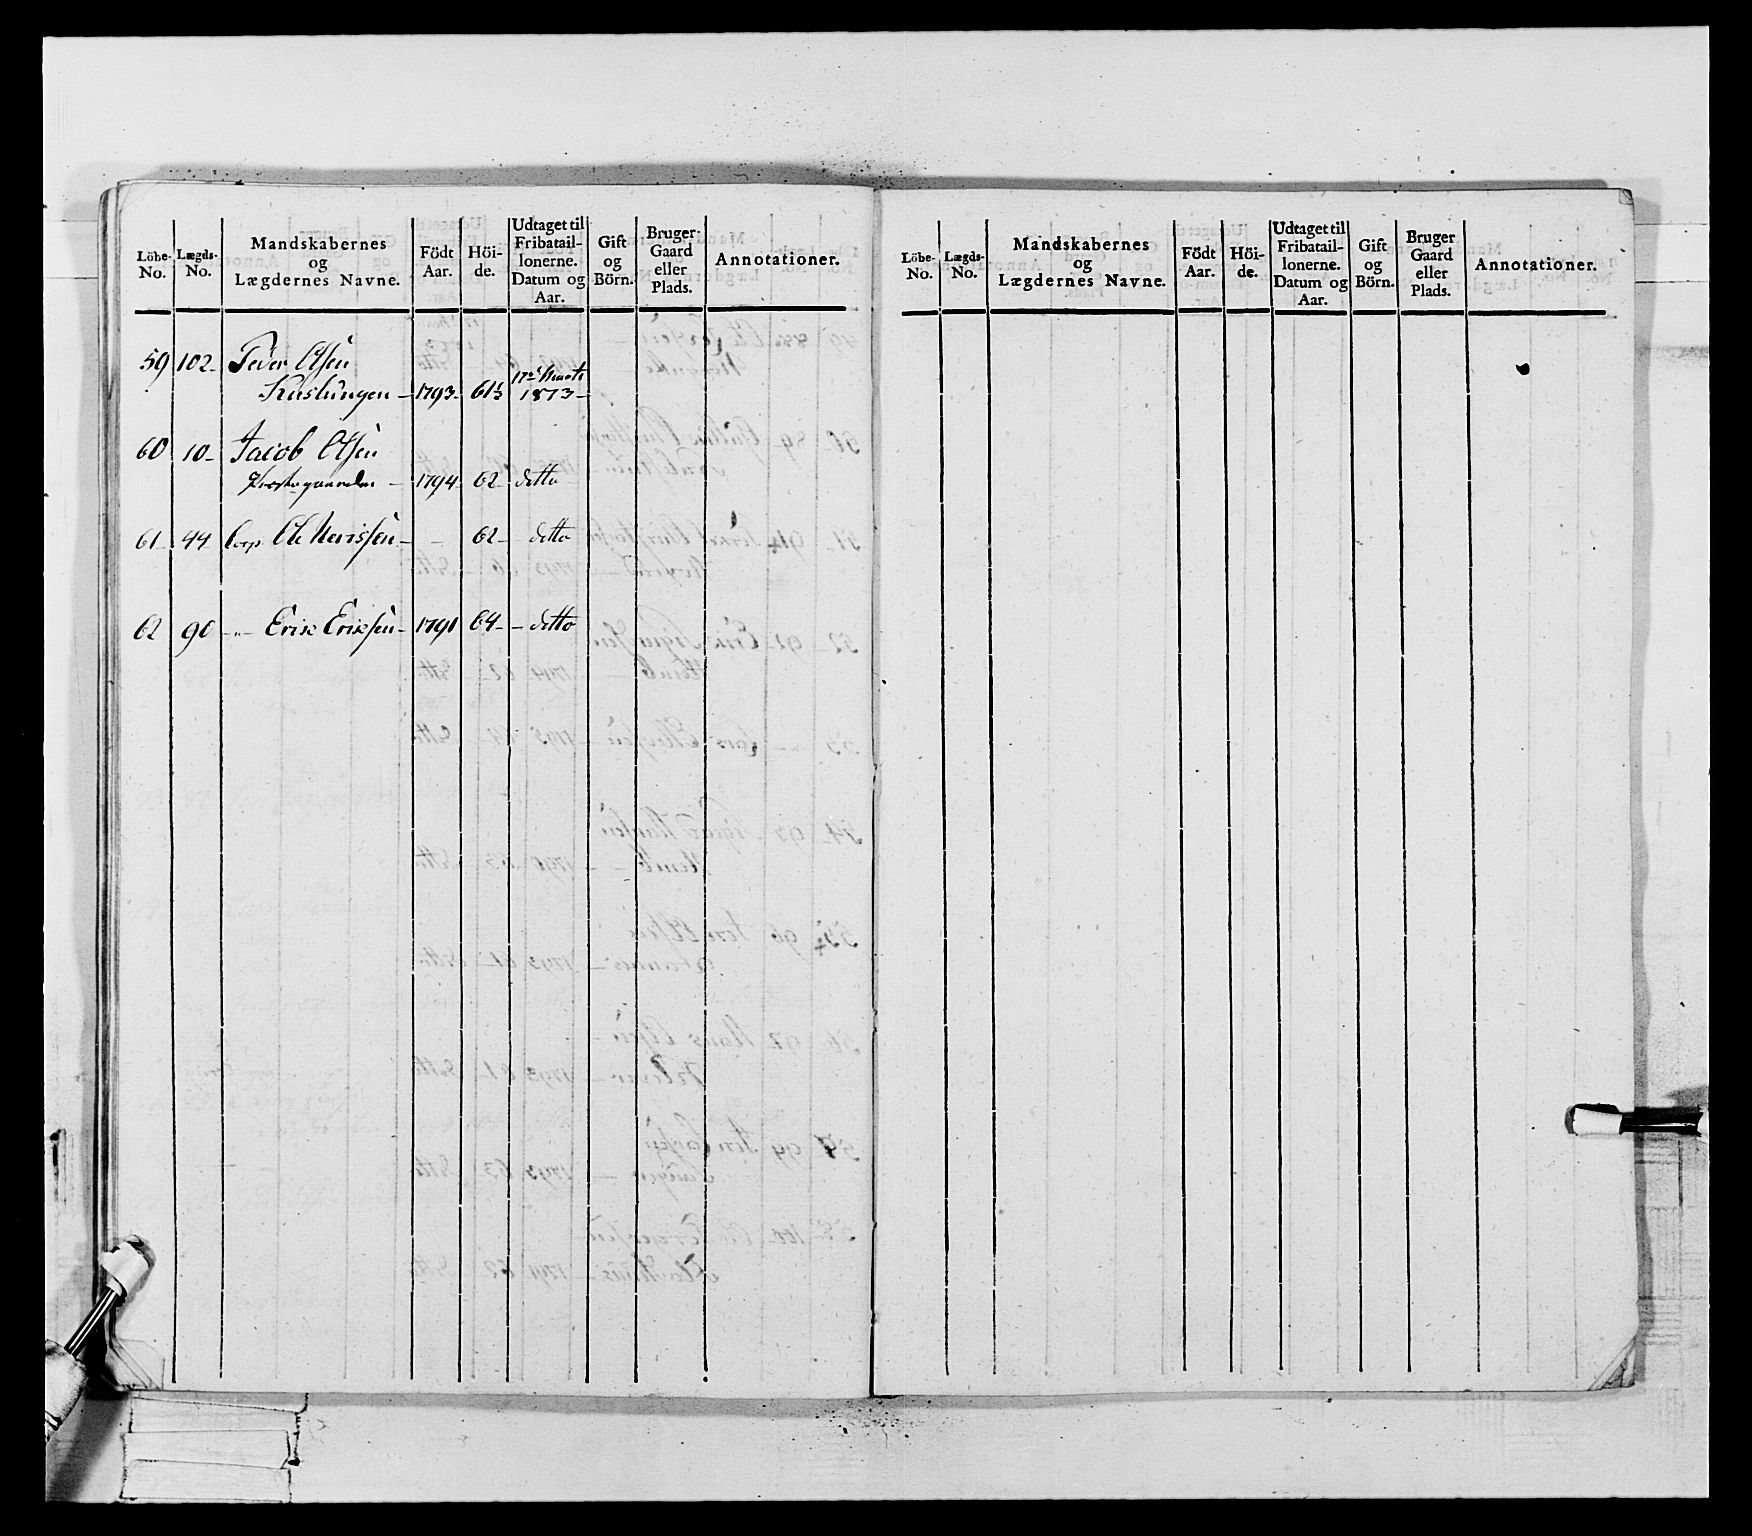 Löbe- No. Lægds- No. Mandskabernes og Lægdernes Navne. Födt Aar. Höi- de. Udtaget til Fribatail- lonerne. Datum og Aar. Gift og Börn. Bruger- Gaard eller Plads. Annotationer.
59 102 Peder Olsen
1793 61½ 1813
60 10 Jacob Olsen
Præstegaarden 1794 62 ditto
61 44 Corp. Ole 62 ditto
62 90 Erik Eriksen 1791 64 ditto
Löbe- No. Lægds- No. Mandskabernes og Lægdernes Navne. Födt Aar. Höi- de. Udtaget til Fribatail- lonerne. Datum og Aar. Gift og Börn. Bruger Gaard eller Plads. Annotationer.